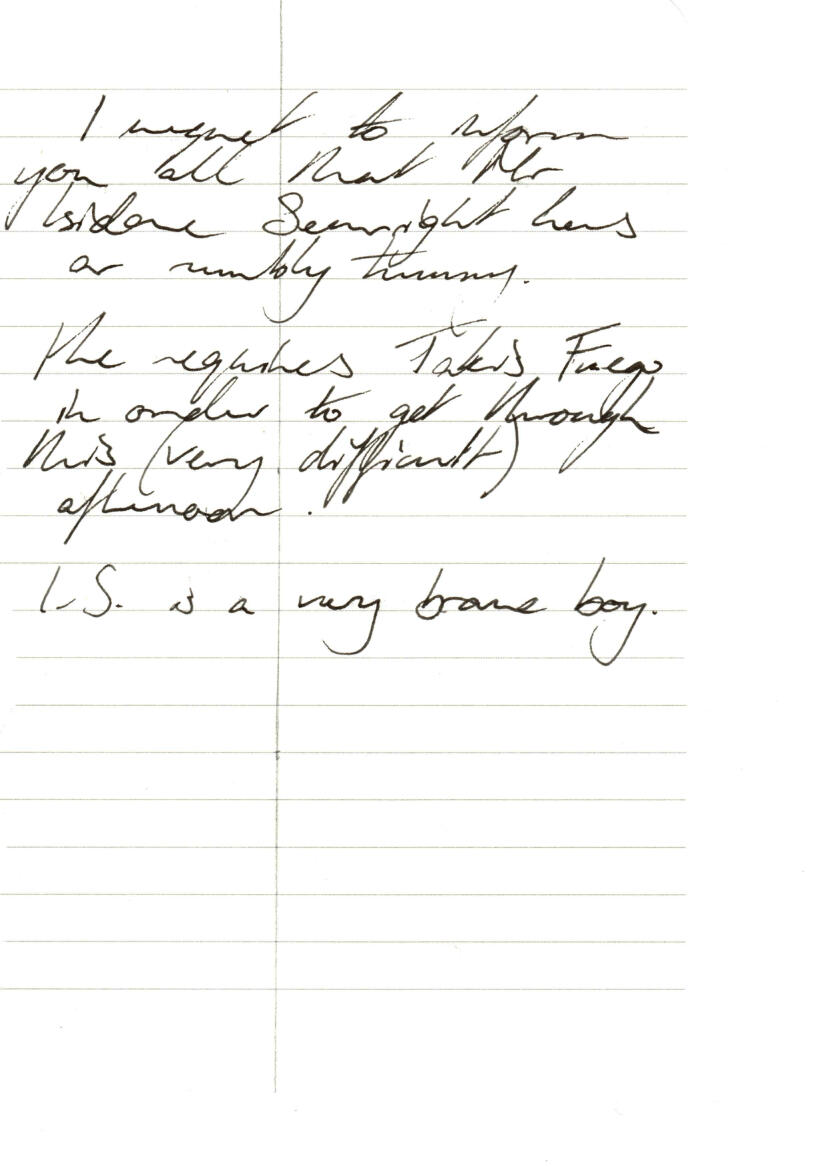 I regret to inform
you all that Mr
Isidore Searight has
a rumbly tummy.
He requires Takis Fuego
in order to get through
this (very difficult)
afternoon.
I.S. is a very brave boy.